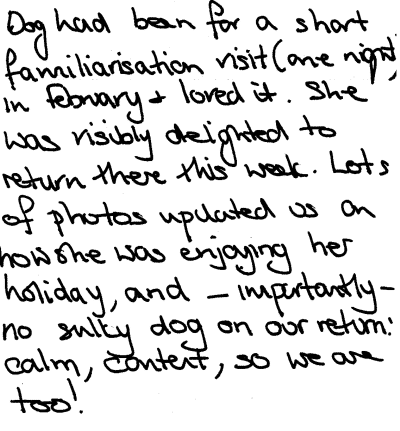 Dog had been for a short
familiarisation visit (one night)
in february + loved it. She
was visibly deighted to
return there this week. Lots
of photos updated us on
how she was enjoying her
holiday, and - importantly -
no sulky dog on our return:
calm, content, so we are
too!